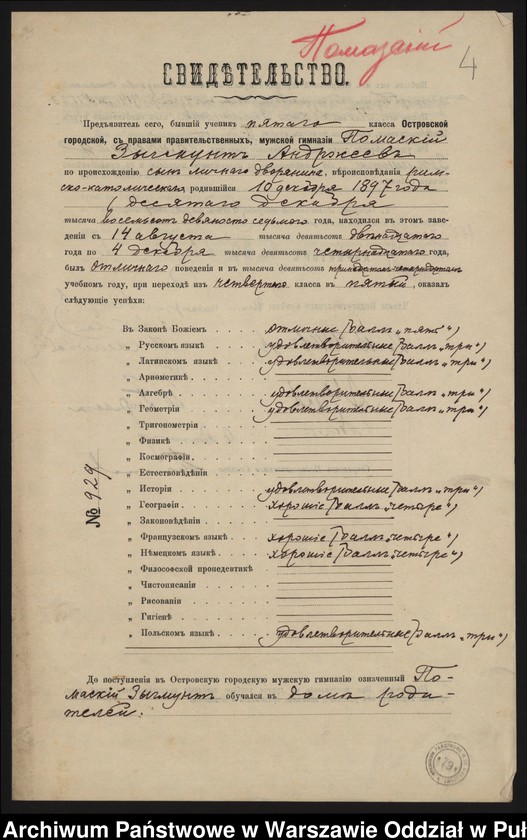 Помазанiй
4
СВИДѢТЕЛЬСТВО.
Предъявитель сего, бывшій ученикъ пятаго класса Островской
городской, съ правами правительственныхъ, мужской гимназіи Помаскій
Зыгмунтъ Андржеевъ
по происхожденію сынъ личнаго дворянина, вѣроисповѣданія рим-
ско-католическаго родившійся 10 декабря 1897 года
(десятаго декабря
тысяча восемьсотъ девяносто седьмого года, находился въ этомъ заве-
деніи съ 14 августа тысяча девятьсотъ двѣнадцатаго
года по 4 декабря тысяча девятьсотъ четырнадцатаго года,
былъ отличнаго поведенія и въ тысяча девятьсотъ тринадцатомъ-четырнадцатомъ
учебномъ году, при переходѣ изъ четвертаго класса въ пятый, оказалъ
слѣдующіе успѣхи:
Въ Законѣ Божіемъ . . . . отличные (балл „пять“)
„ Русскомъ языкѣ . . . . удовлетворительные (балл „три“)
„ Латинскомъ языкѣ . . . . удовлетворительные (балл „три“)
„ Ариѳметикѣ . . . .
„ Алгебрѣ . . . . удовлетворительные (балл „три“)
„ Геометріи . . . . удовлетворительные (балл „три“)
„ Тригонометріи . . . .
„ Физикѣ . . . .
„ Космографіи . . . .
„ Естествовѣдѣніи . . . .
„ Исторіи . . . . удовлетворительные (балл „три“)
„ Географіи . . . . хорошіе (балл „четыре“)
„ Законовѣдѣніи . . . .
„ Французскомъ языкѣ . . . . хорошіе (балл „четыре“)
„ Нѣмецкомъ языкѣ . . . . хорошіе (балл „четыре“)
„ Философской пропедевтикѣ
„ Чистописаніи . . . .
„ Рисованіи . . . .
„ Гигіенѣ . . . .
„ Польскомъ языкѣ . . . . удовлетворительные (балл „три“)
№ 929
До поступленія въ Островскую городскую мужскую гимназію означенный По-
маскій Зыгмунтъ обучался въ домѣ роди-
телей.
79
Archiwum Państwowe w Warszawie Oddział w Puł